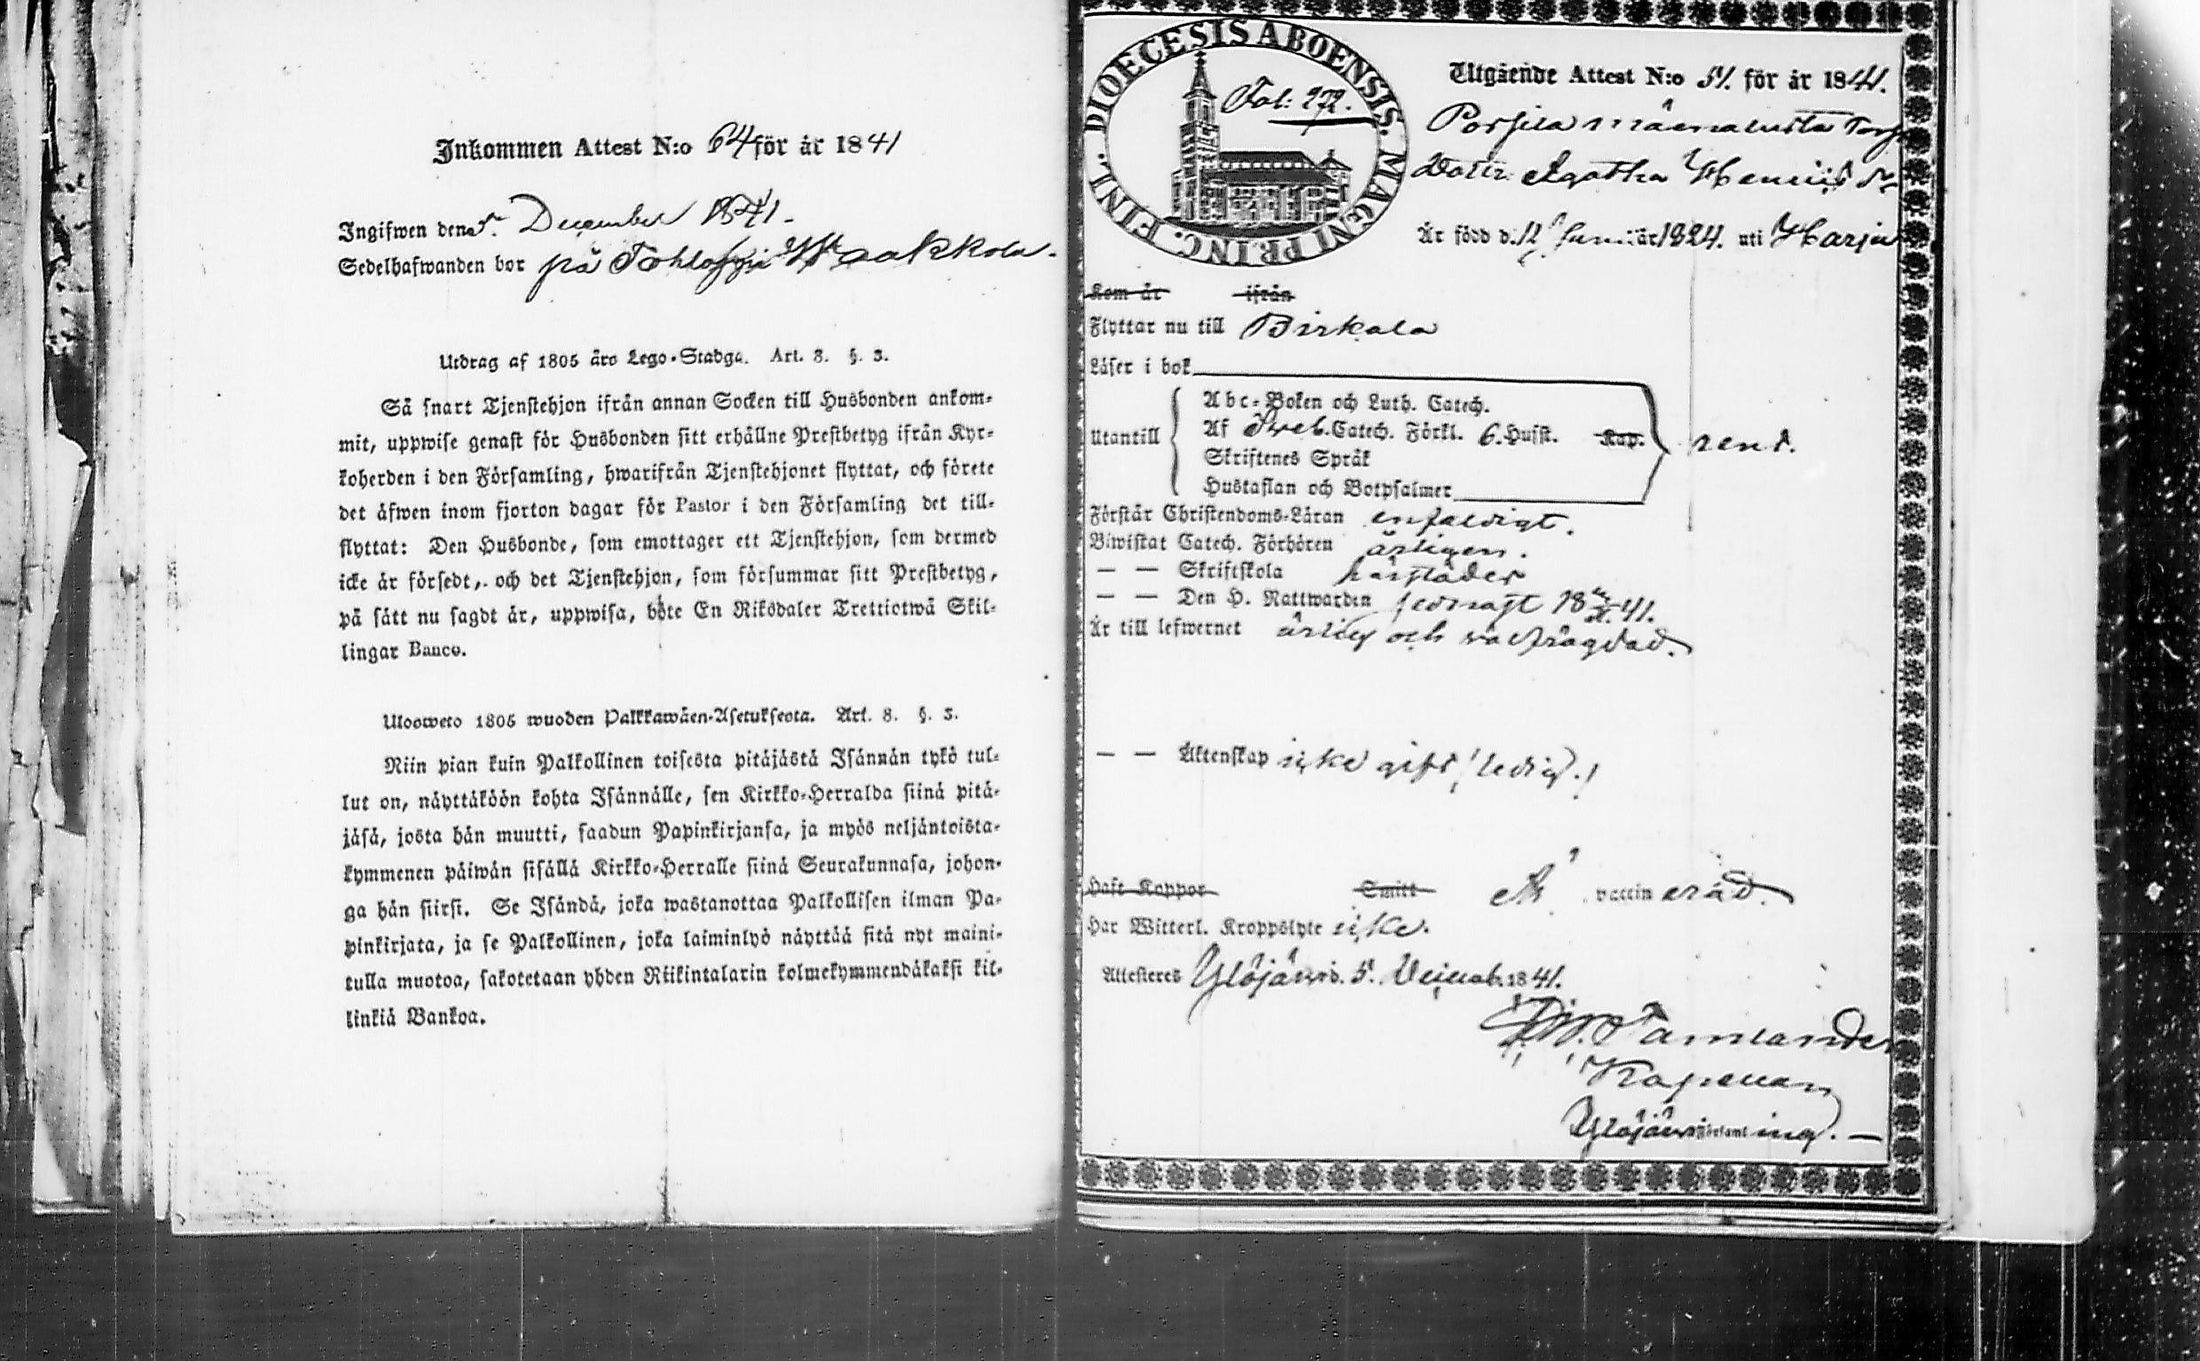 Inkommen Attest N:o 64 för år 1841
Ingifwen den 5. December 1841.
Sedelhafwanden bor på Tohloppi Waakkola.
Utdrag af 1805 års Lego-Stadga. Art. 8. §. 3.
Så snart Tjenstehjon ifrån annan Socken till Husbonden ankom-
mit, uppwise genast för Husbonden sitt erhållne Prestbetyg ifrån Kyr-
koherden i den Församling, hwarifrån Tjenstehjonet flyttat, och förete
det äfwen inom fjorton dagar för Pastor i den Församling det till-
flyttat: Den Husbonde, som emottager ett Tjenstehjon, som dermed
icke är försedt, och det Tjenstehjon, som försummar sitt Prestbetyg,
på sätt nu sagdt är, uppwisa, böte En Riksdaler Trettiotwå Skil-
lingar Banco.
Ulosweto 1805 wuoden Palkkawäen-Asetuksesta. Art. 8. §. 3.
Niin pian kuin Palkollinen toisesta pitäjästä Isännän tykö tul-
lut on, näyttäköön kohta Isännälle, sen Kirkko-Herralda siinä pitä-
jäsä, josta hän muutti, saadun Papinkirjansa, ja myös neljäntoista-
kymmenen päiwän sisällä Kirkko-Herralle siinä Seurakunnasa, johon-
ga hän siirsi. Se Isändä, joka wastanottaa Palkollisen ilman Pa-
pinkirjata, ja se Palkollinen, joka laiminlyö näyttää sitä nyt maini-
tulla muotoa, sakotetaan yhden Riikintalarin kolmekymmendäkaksi kil-
linkiä Bankoa.
DIOECESIS ABOENSIS. MAGNI PRINC. FINL.
Fol: 272.
Utgående Attest N:o 51. för år 1841.
Dottr. Agatha Henrics dr
Är född d. 12 Juni år 1824. uti Harju
Kom år ifrån
Flyttar nu till Birkala
Läser i bok
Abc-Boken och Luth. Catech.
Utantill Af Sveb. Catech. Förkl. 6. Hufst. Kap. rent.
Skriftenes Språk
Hustaflan och Botpsalmer
Förstår Christendoms-Läran enfaldigt.
Biwistat Catech. Förhören årligen.
— — Skriftskola härstädes
— — Den H. Nattwarden sednast 18 41.
Är till lefwernet ärlig och wälfrägdad.
— — Äktenskap icke gift, ledig.
Haft Koppor Smitt vaccinerad.
Har Witterl. Kroppslyte icke.
Attesteres Ylöjärvi d. 5. Decemb. 1841.
Tamlander
Kapellan
Ylöjärvi Församling. —